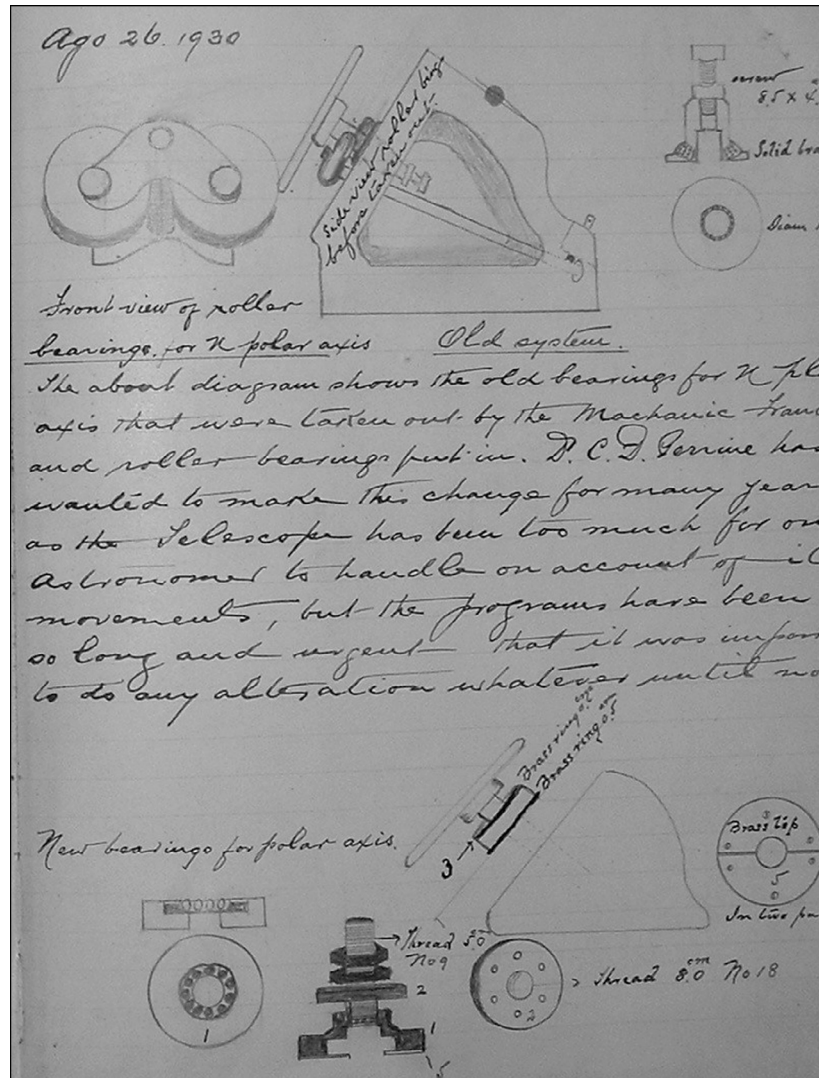 Ago 26. 1930
screw
8.5 x 4
Solid bra
Diam
Side view roller bings
before taken out.
Front view of roller
bearings for N polar axis
Old system.
The about diagram shows the old bearings for N pl
axis that were taken out by the Machanic Fran
and roller bearings put in. D. C. D. Perrine has
wanted to make this change for many year
as the Telescope has been too much for on
Astronomer to handle on account of it
movements, but the programs have been
so long and urgent that it was impos
to do any alteration whatever until no
Brass ring
Brass ring 0.5
3
Brass top
5
In two pa
New bearings for polar axis.
Thread 5.0 cm
No 9
2
1
1
5
2
Thread 8.0 cm No 18